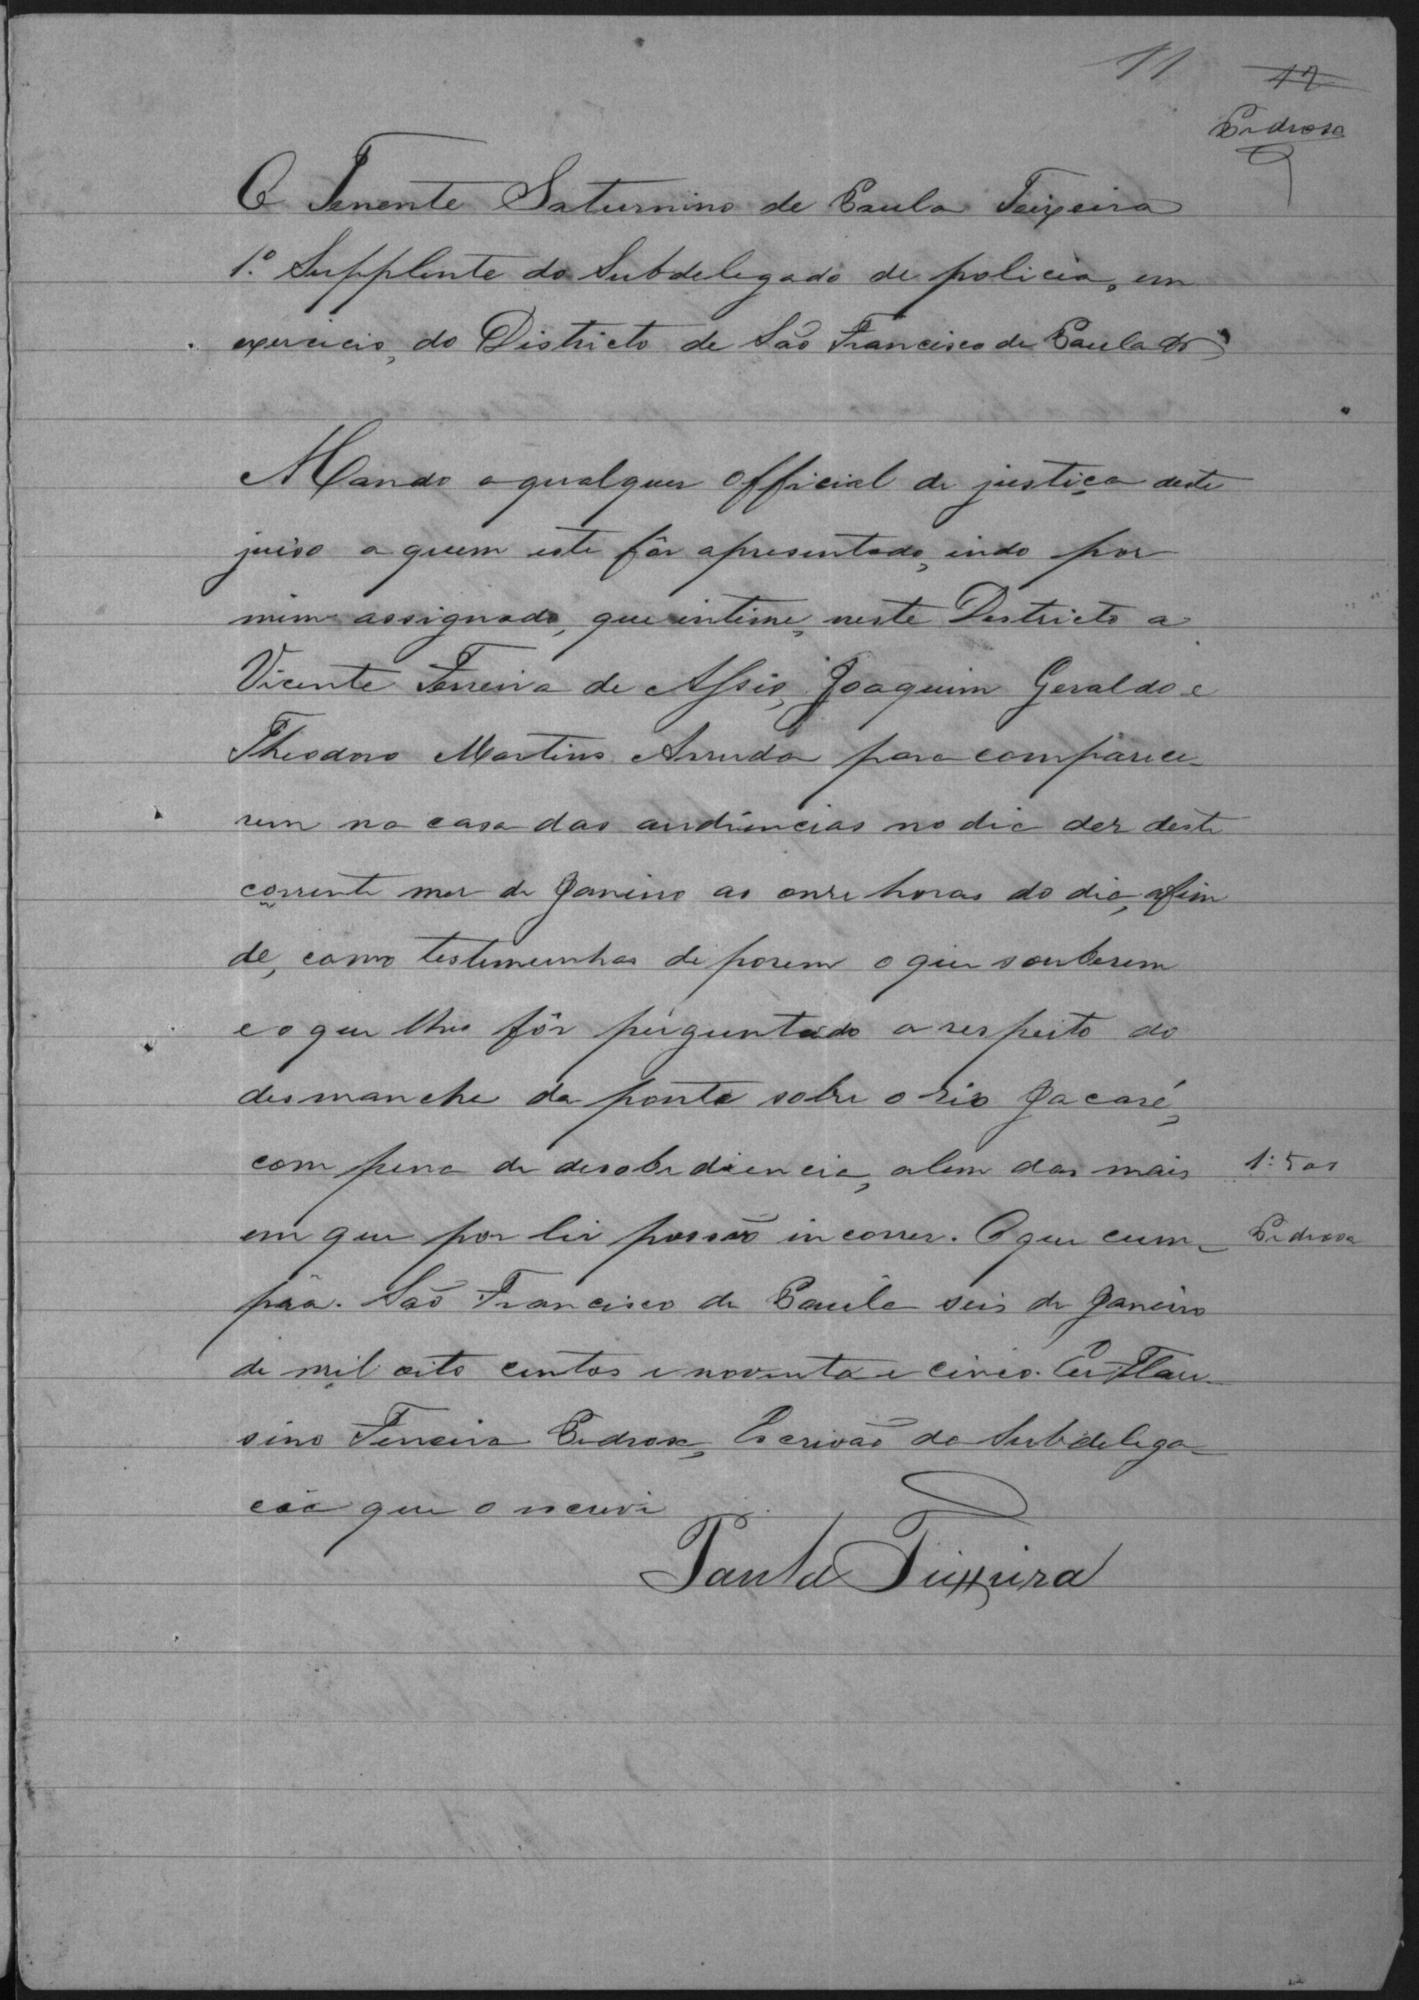 11
12
Pedrosa
O Tenente Saturnino de Paula Teixeira
1.º Supplente do Subdelegado de policia, em
exercicio, do Districto de São Francisco de Paula
Mando a qualquer official de justiça deste
juiso a quem este fôr apresentado, indo por
mim assignado, que intime, neste Destricto a
Vicente Ferreira de Assis, Joaquim Geraldo e
Theodoro Martins Arruda para comparece-
rem na casa das audiencias no dia dez deste
corrente mez de Janeiro as onze horas do dia, afim
de, como testemunhas deporem o que souberem
e o que lhes fôr perguntado a respeito do
desmanche da ponte sobre o rio Jacaré,
com pena de desobediencia, alem das mais
em que por lei possão incorrer. O que cum-
pra. São Francisco de Paula seis de Janeiro
de mil oito centos e noventa e cinco. Eu Flau-
sino Ferreira Pedrosa, Escrivão da Subdelega-
cia que o escrevi
1:500
Pedrosa
Paula Teixeira